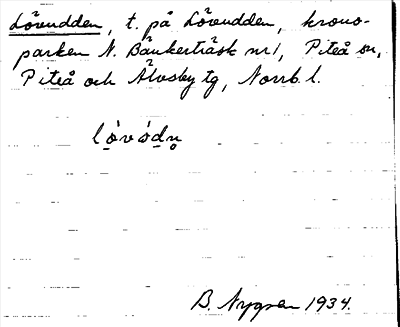 Lövudden, t. på Lövudden, krono-
parken N. Bänkerträsk nr 1, Piteå sn,
Piteå och Älvsby tg, Norrb. l.
B. Nygren 1934.